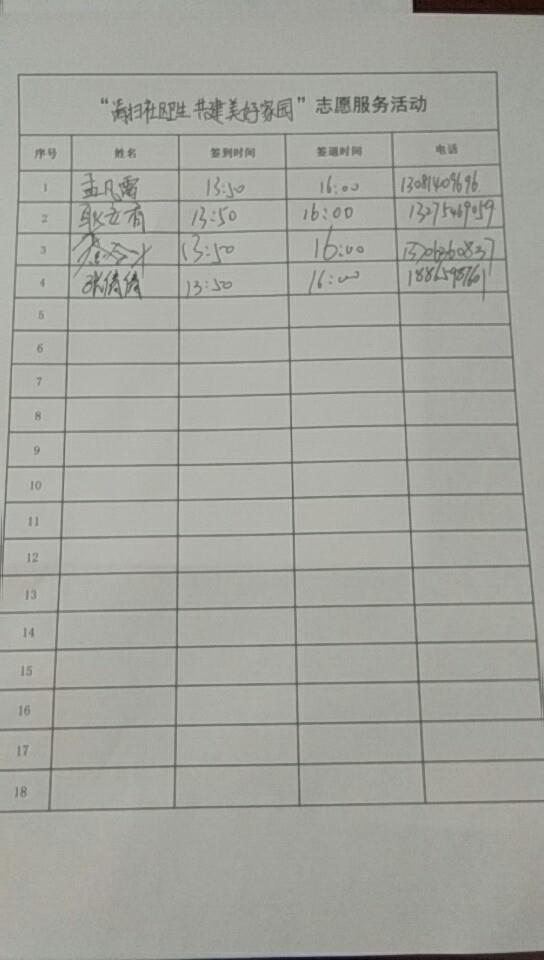 “清扫社区卫生 共建美好家园”志愿服务活动
序号 姓名 签到时间 签退时间 电话
1 孟凡雷 13:50 16:00 13081409696
2 耿立有 13:50 16:00 13275469059
3 13:50 16:00
4 张倩倩 13:50 16:00
5
6
7
8
9
10
11
12
13
14
15
16
17
18